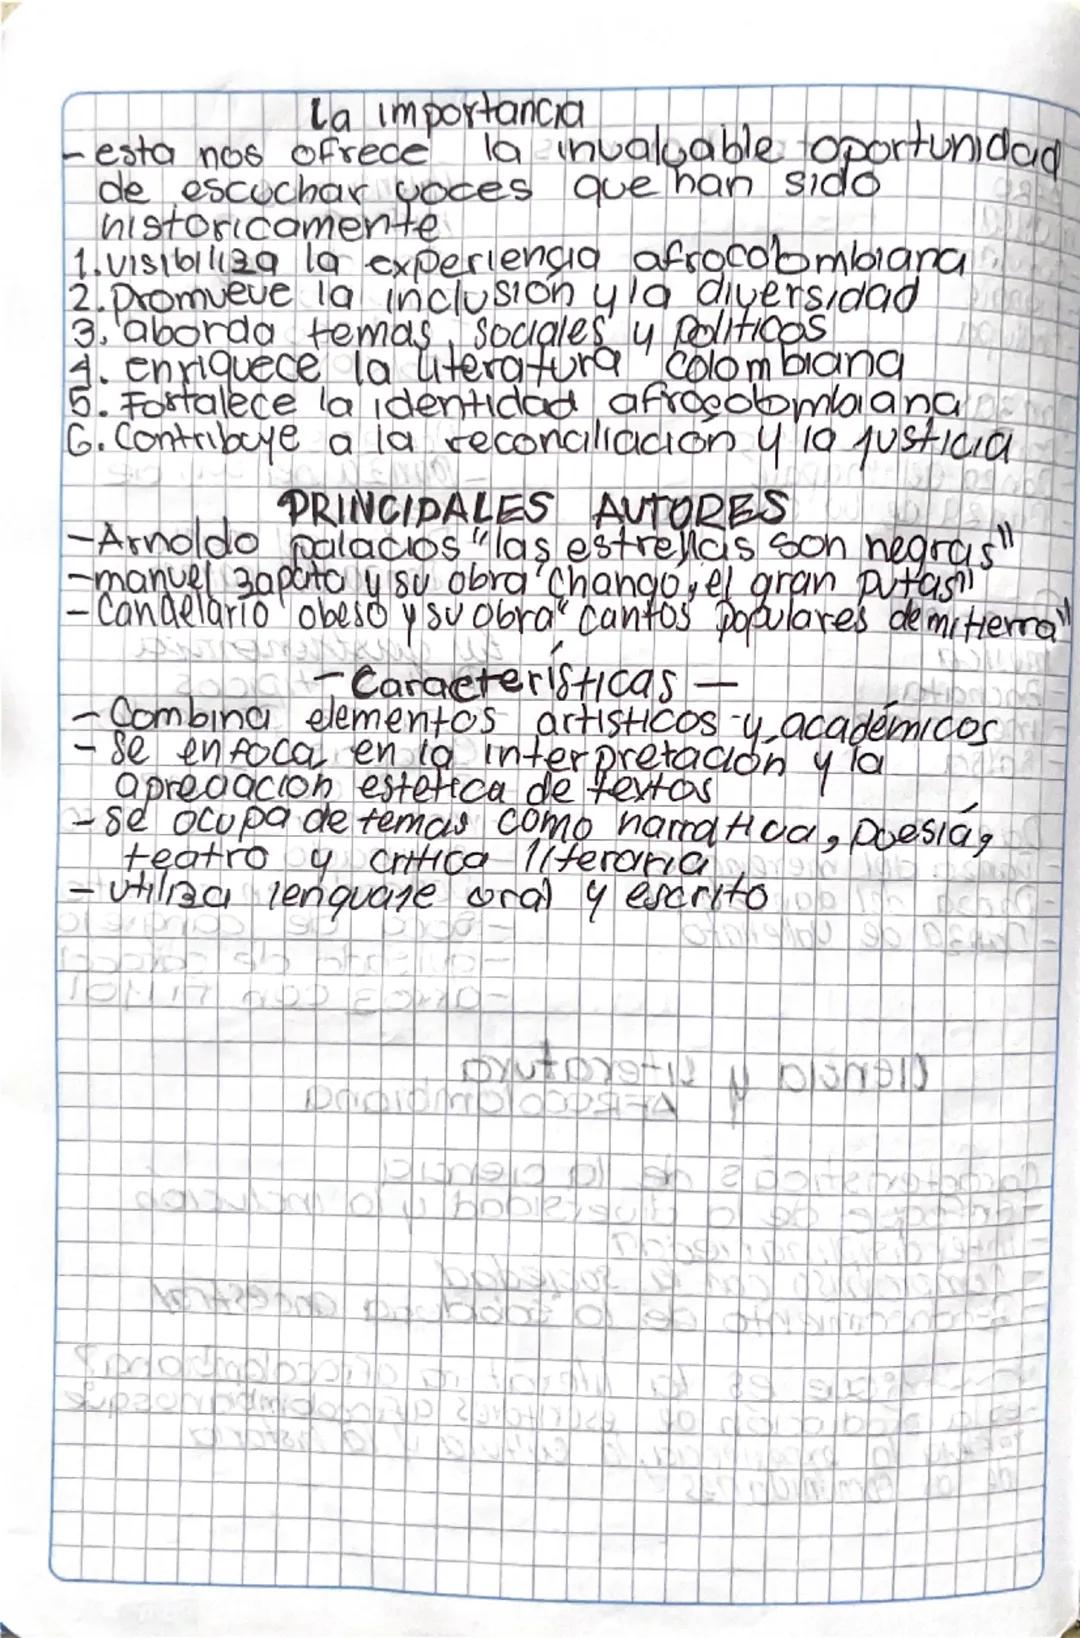 La importancia
- esta nos ofrece la invaluable oportunidad
de escuchar voces que han sido
historicamente
1. visibiliza la experiencia afrocolombiana
2. Promueve la inclusión y la diversidad
3. aborda temas sociales y politicos
4. enriquece la literatura colombiana
5. Fortalece la identidad afrocolombiana
6. Contribuye a la reconciliación y la justicia
PRINCIPALES AUTORES
- Arnoldo palacios "las estrellas son negras"
- manuel zapata y su obra "Chango, el gran putas"
- Candelario obeso y su obra "cantos populares de mi tierra"
- Características -
- Combina elementos artisticos y académicos
- se enfoca en la interpretación y la
apreciacion estetica de textos
- se ocupa de temas como narrativa, poesía,
teatro y critica literaria
- utiliza lenguaje oral y escrito